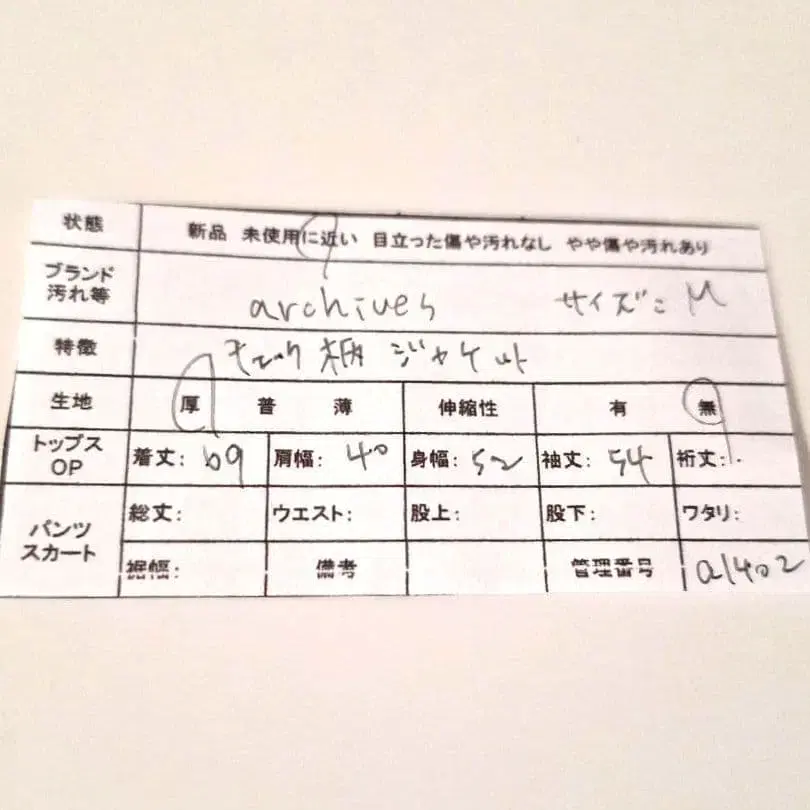 状態 新品 未使用に近い 目立った傷や汚れなし やや傷や汚れあり
ブランド
汚れ等 archives サイズ: M
特徴 チェック柄 ジャケット
生地 厚 普 薄 伸縮性 有 無
トップス
OP 着丈: 69 肩幅: 40 身幅: 52 袖丈: 54 裄丈:
パンツ
スカート 総丈: ウエスト: 股上: 股下: ワタリ:
裾幅: 備考 管理番号 a1402